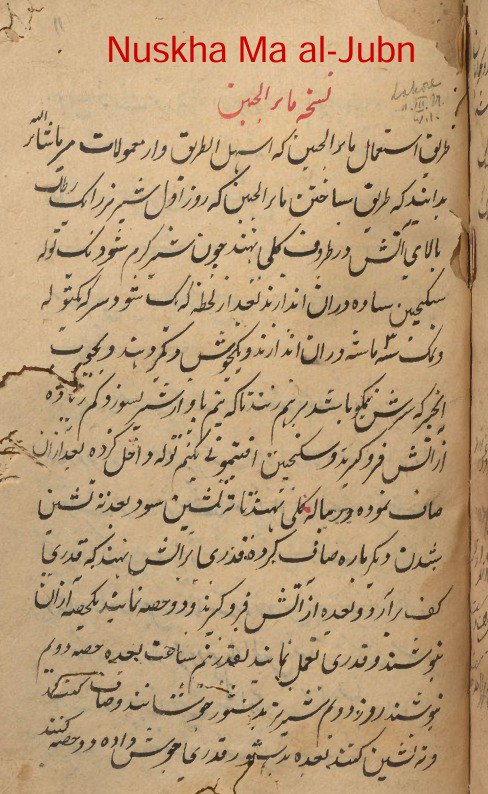 Nuskha Ma al-Jubn
نسخه ماء الجبن
Lahore
طریق استعمال ماء الجبن که اسهل الطریق و از معمولات میر ماشاء الله
بدانند که طریق ساختن ماء الجبن که روز اول شیر بز را یک رطل
بالای آتش در ظروف گلی نهند چون شیر گرم شود یک توله
سکنجبین ساده در ان اندازند بعد از لحظه که شود سرکه یکتوله
و نمک سه ماشه در ان اندازند و یکجوش دیگر دهند و بچوب
انجیر که سرش باشد برهم زنند تا که نیم پاو از شیر بسوزد کم زیاده
از آتش فرو گیرند و سکنجبین افتیمونی یکنیم توله داخل کرده بعد ازان
صاف نموده در گلی نهند تا ته نشین سود بعد ته نشین
شدن دیگر باره صاف کرده قدری بر آتش نهند که قدری
کف برآرد و بعده از آتش فرو گیرند و دو حصه نمایند یکحصه ازان
نوشند و قدری نمایند بقدر نیم ساعت بعده حصه دویم
نوشند روز دویم شیر بز بدستور جوشانند و صاف کنند
و ته نشین کنند بعده بدستور قدری جوش داده دو حصه کنند